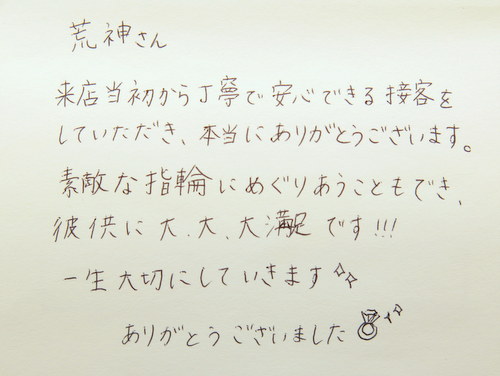 荒神さん
来店当初から丁寧で安心できる接客を
していただき、本当にありがとうございます。
素敵な指輪にめぐりあうこともでき、
彼供に大、大、大満足です!!!
一生大切にしていきます
ありがとうございました